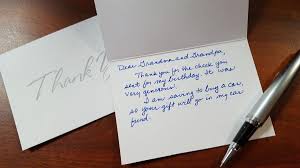 Thank
Dear Grandma and Grandpa,
Thank you for the check you
sent for my birthday. It was
very generous.
I am saving to buy a car,
so your gift will go in my car
fund.